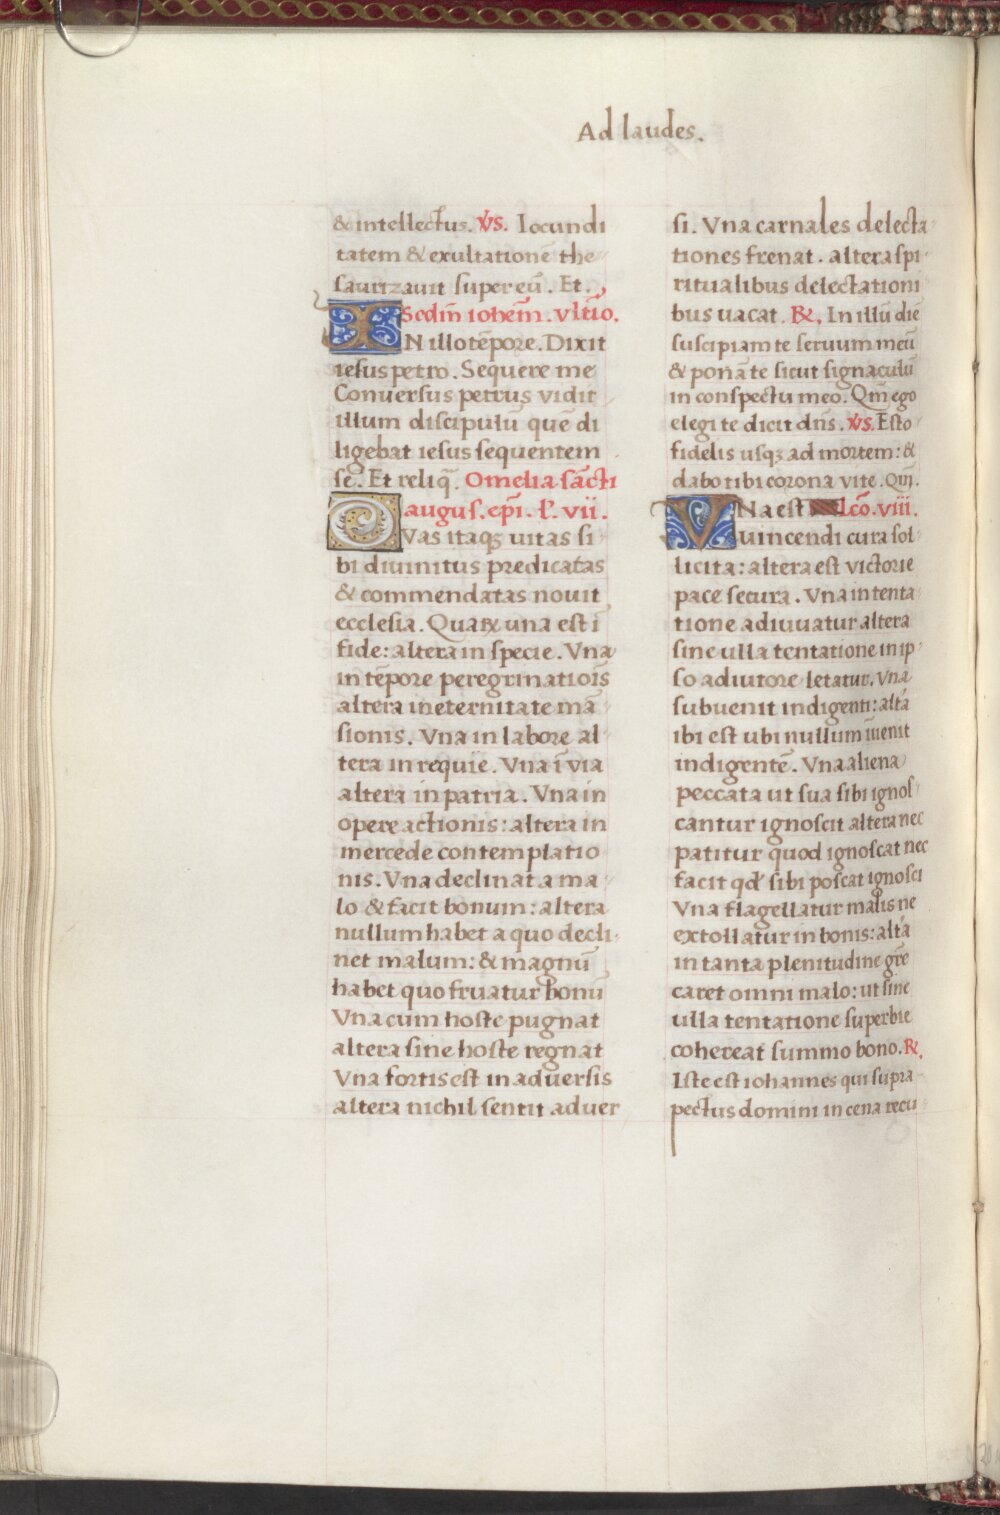 Ad laudes.
& intellectus. V̄s. Iocundi
tatem & exultationē the
saurizavit super eū. Et.
Scdm̄ iohem̄. vltīo.
IN illo tēpore. Dixit
iesus petro. Sequere me
Conversus petrus vidit
illum discipulū quē di
ligebat iesus sequentem
se. Et reliq̄. Omelia sācti
augus. ep̄i. l̄. vii.
DVas itaqꝫ uitas si
bi divinitus predicatas
& commendatas novit
ecclesia. Quaꝝ una est ī
fide: altera in specie. Vna
in tēpore peregrinatiōis
altera in eternitate mā
sionis. Vna in labore al
tera in requie. Vna ī via
altera in patria. Vna in
opere actionis: altera in
mercede contemplatio
nis. Vna declinat a ma
lo & facit bonum: altera
nullum habet a quo decli
net malum: & magnū
habet quo fruatur bonū
Vna cum hoste pugnat
altera sine hoste regnat
Vna fortis est in adversis
altera nichil sentit adver
si. Vna carnales delecta
tiones frenat. altera spi
ritualibus delectationi
bus uacat. ℟. In illū diē
suscipiam te servum meū
& ponā te sicut signaculū
in conspectu meo. Qm̄ ego
elegi te dicit dn̄s. V̄s. Esto
fidelis usqꝫ ad mortem: &
dabo tibi corona vite. Qm̄.
VNa est Lcō. viii.
uincendi cura sol
licita: altera est victorie
pace secura. Vna in tenta
tione adiuuatur altera
sine ulla tentatione in ip
so adiutore letatur. Vna
subuenit indigenti: altā
ibi est ubi nullum īuenit
indigentē. Vna aliena
peccata ut sua sibi ignos
cantur ignoscit altera nec
patitur quod ignoscat nec
facit qd' sibi poscat ignosci
Vna flagellatur malis ne
extollatur in bonis: altā
in tanta plenitudine grē
caret omni malo: ut sine
ulla tentatione superbie
cohereat summo bono. ℟.
Iste est iohannes qui supra
pectus domini in cena recu